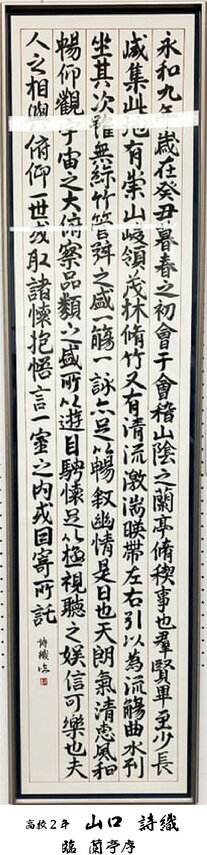 永和九年歳在癸丑暮春之初會于會稽山陰之蘭亭脩稧事也群賢畢至少長
咸集此地有崇山峻領茂林脩竹又有清流激湍暎帶左右引以為流觴曲水列
坐其次雖無絲竹管弦之盛一觴一詠亦足以暢叙幽情是日也天朗氣清恵風和
暢仰觀宇宙之大俯察品類之盛所以遊目騁懷足以極視聽之娯信可樂也夫
人之相與俯仰一世或取諸懷抱悟言一室之内或因寄所託
詩織臨
高校2年 山口 詩織
臨 蘭亭序